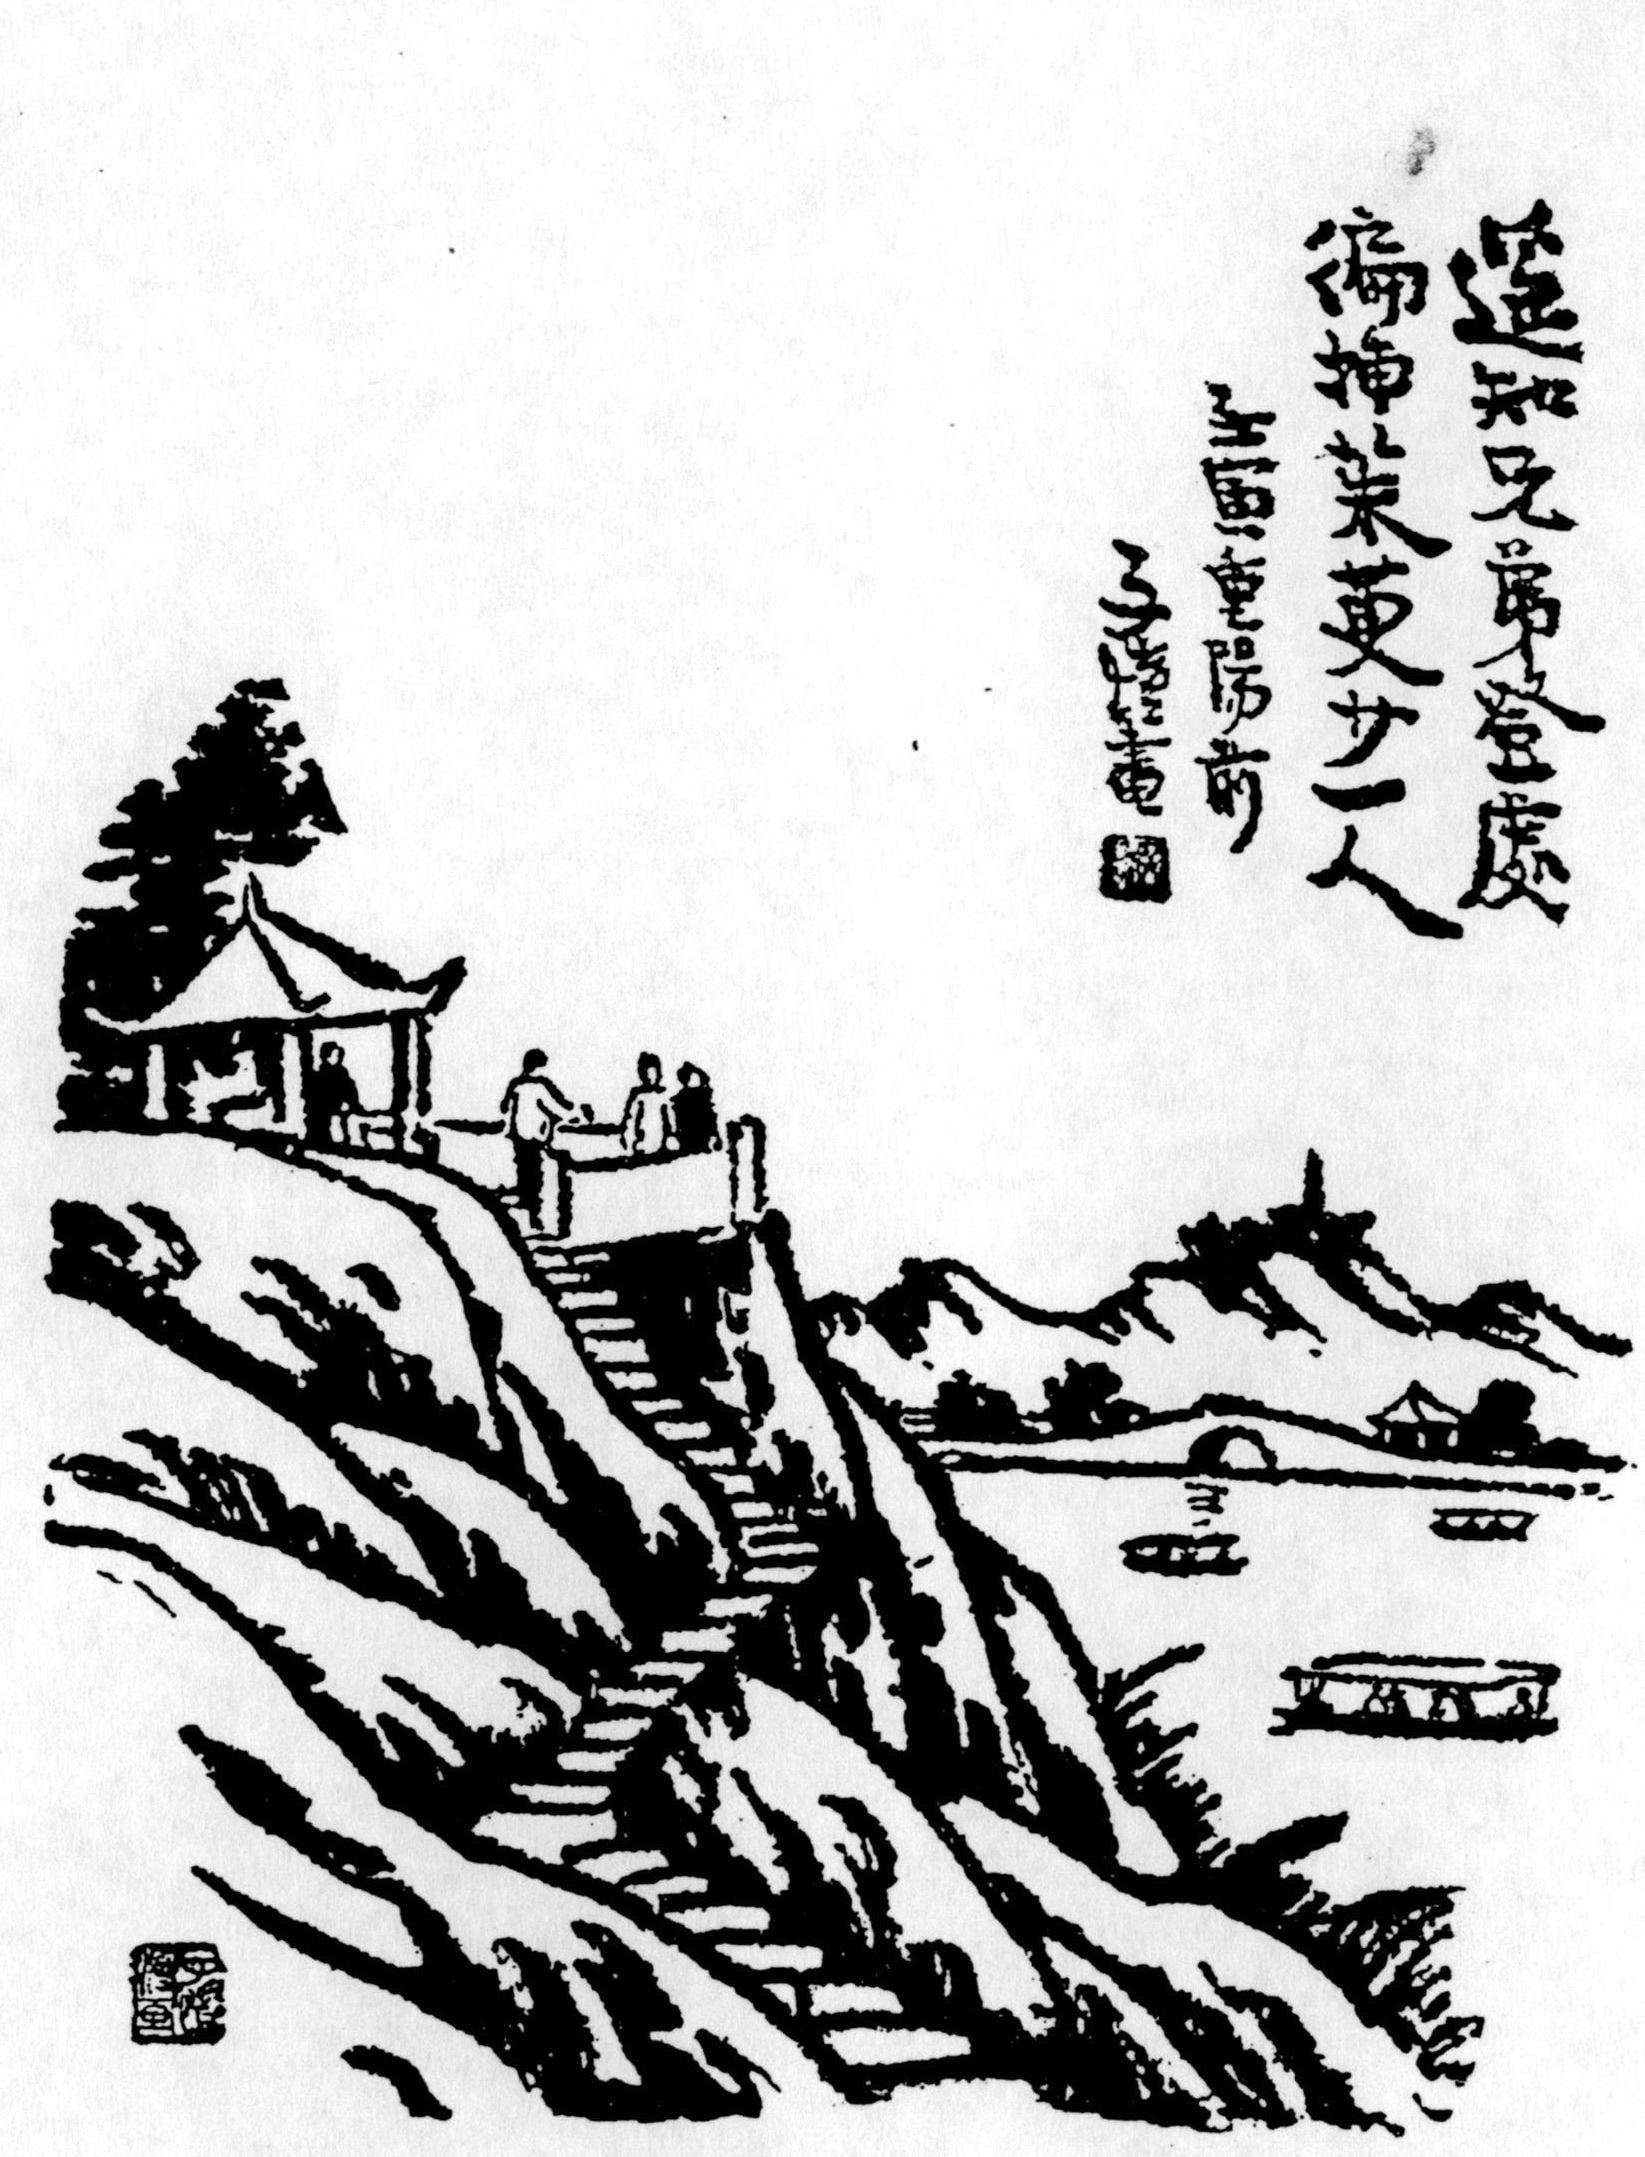 遥知兄弟登處
徧插茱萸少一人
壬寅重陽前
子愷畫